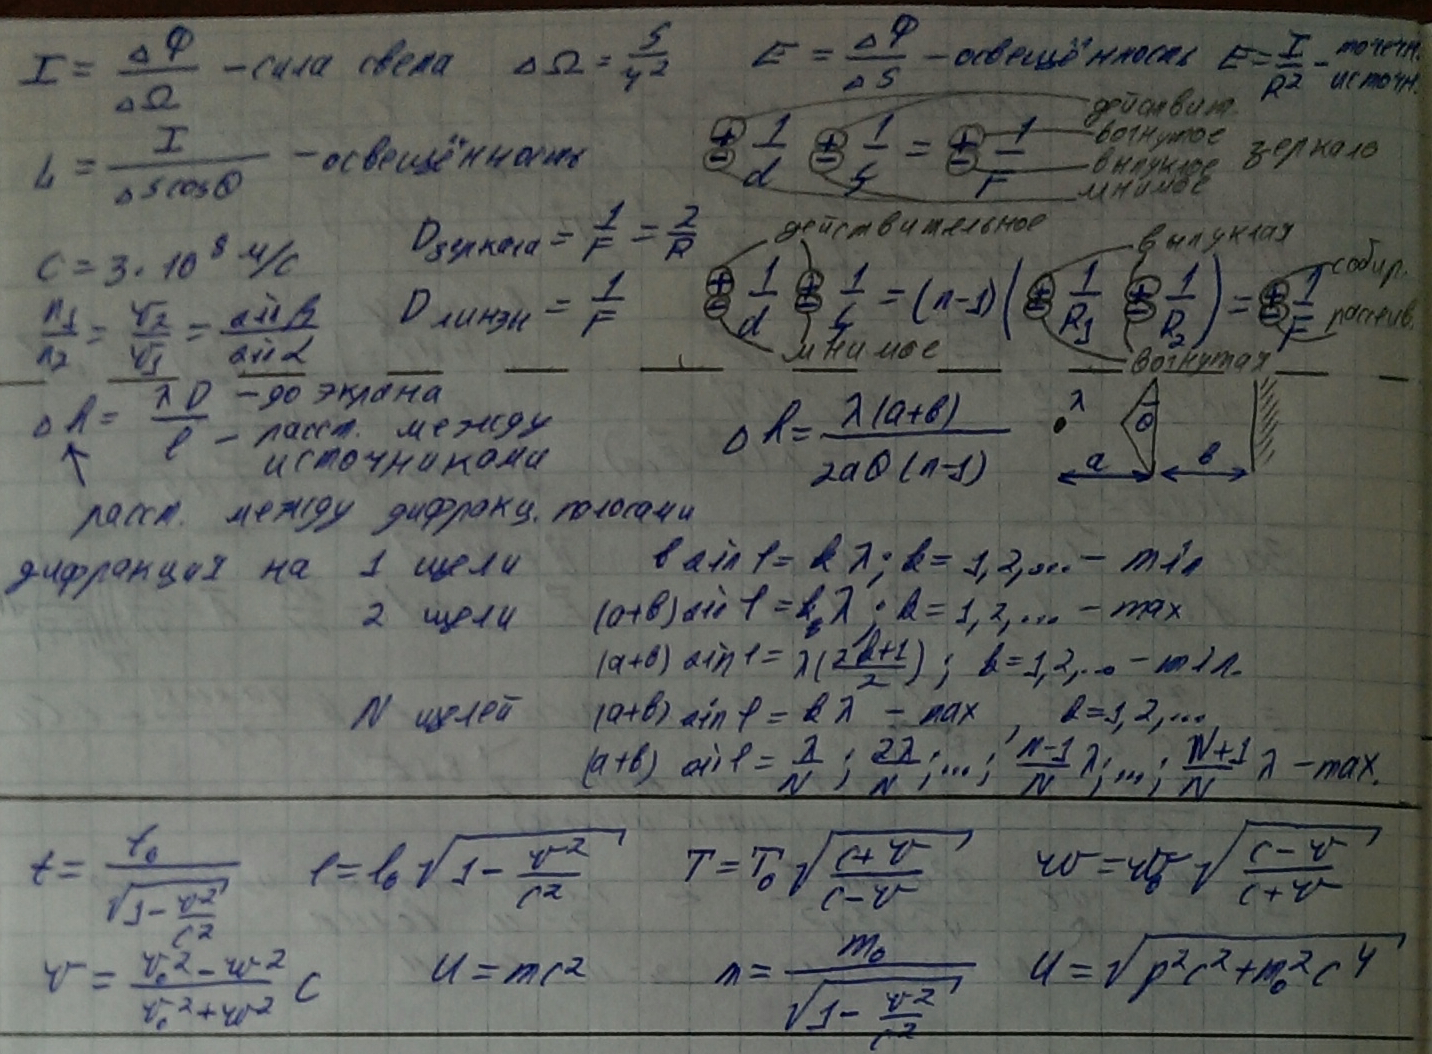 I = ΔΦ/ΔΩ – сила света ΔΩ = S/r² E = ΔΦ/ΔS – освещённость E = I/R² – точечн. источн.
L = I/(ΔS cosθ) – освещённость
± 1/d ± 1/f = ± 1/F действит. вогнутое выпуклое мнимое зеркало
C = 3·10⁸ м/с
D зеркала = 1/F = 2/R
n₁/n₂ = v₂/v₁ = sin β/sin α
D линзы = 1/F
действительное выпуклая собир.
± 1/d ± 1/f = (n-1)(± 1/R₁ ± 1/R₂) = ± 1/F
мнимое вогнутая рассеив.
Δh = λD/l – до экрана
– расст. между
источниками
расст. между дифракц. полосами
Δh = λ(a+b)/(2aθ(n-1)) λ θ a b
дифракция на 1 щели b sin φ = kλ; k = 1,2,... – min
2 щели (a+b) sin φ = kλ; k = 1,2,... – max
(a+b) sin φ = λ((2k+1)/2); k = 1,2,... – min.
N щелей (a+b) sin φ = kλ – max, k = 1,2,...
(a+b) sin φ = λ/N; 2λ/N; ...; (N-1)/N λ; ...; (N+1)/N λ – max.
t = t₀/√(1 - v²/c²) l = l₀√(1 - v²/c²) T = T₀√((c+v)/(c-v)) w = w₀√((c-v)/(c+v))
v = (v₀² - w²)/(v₀² + w²) c U = mc² m = m₀/√(1 - v²/c²) U = √(p²c² + m₀²c⁴)